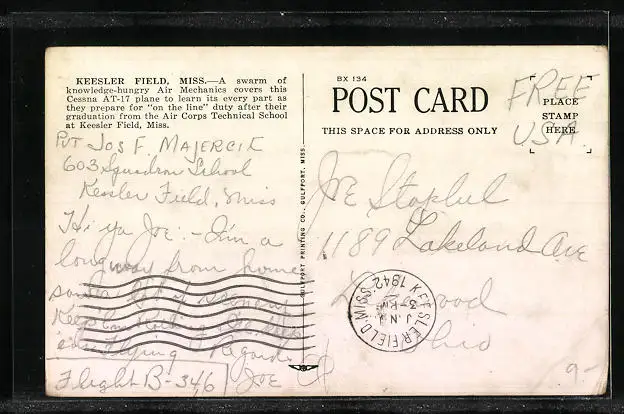 KEESLER FIELD, MISS.—A swarm of
knowledge-hungry Air Mechanics covers this
Cessna AT-17 plane to learn its every part as
they prepare for "on the line" duty after their
graduation from the Air Corps Technical School
at Keesler Field, Miss.
Pvt Jos F. MAJERCIK
603 Squadron School
Kessler Field, Miss
Hi ya Joe:- I'm a
long way from home
Keep 'em
'em Flying Regards
Flight B-346 JOE
GULFPORT PRINTING CO., GULFPORT, MISS.
BX 134
POST CARD
THIS SPACE FOR ADDRESS ONLY
PLACE
STAMP
HERE
FREE
USA.
Joe
1189 Lakeland Ave
Ohio
KEESLER FIELD, MISS.
1942
9-